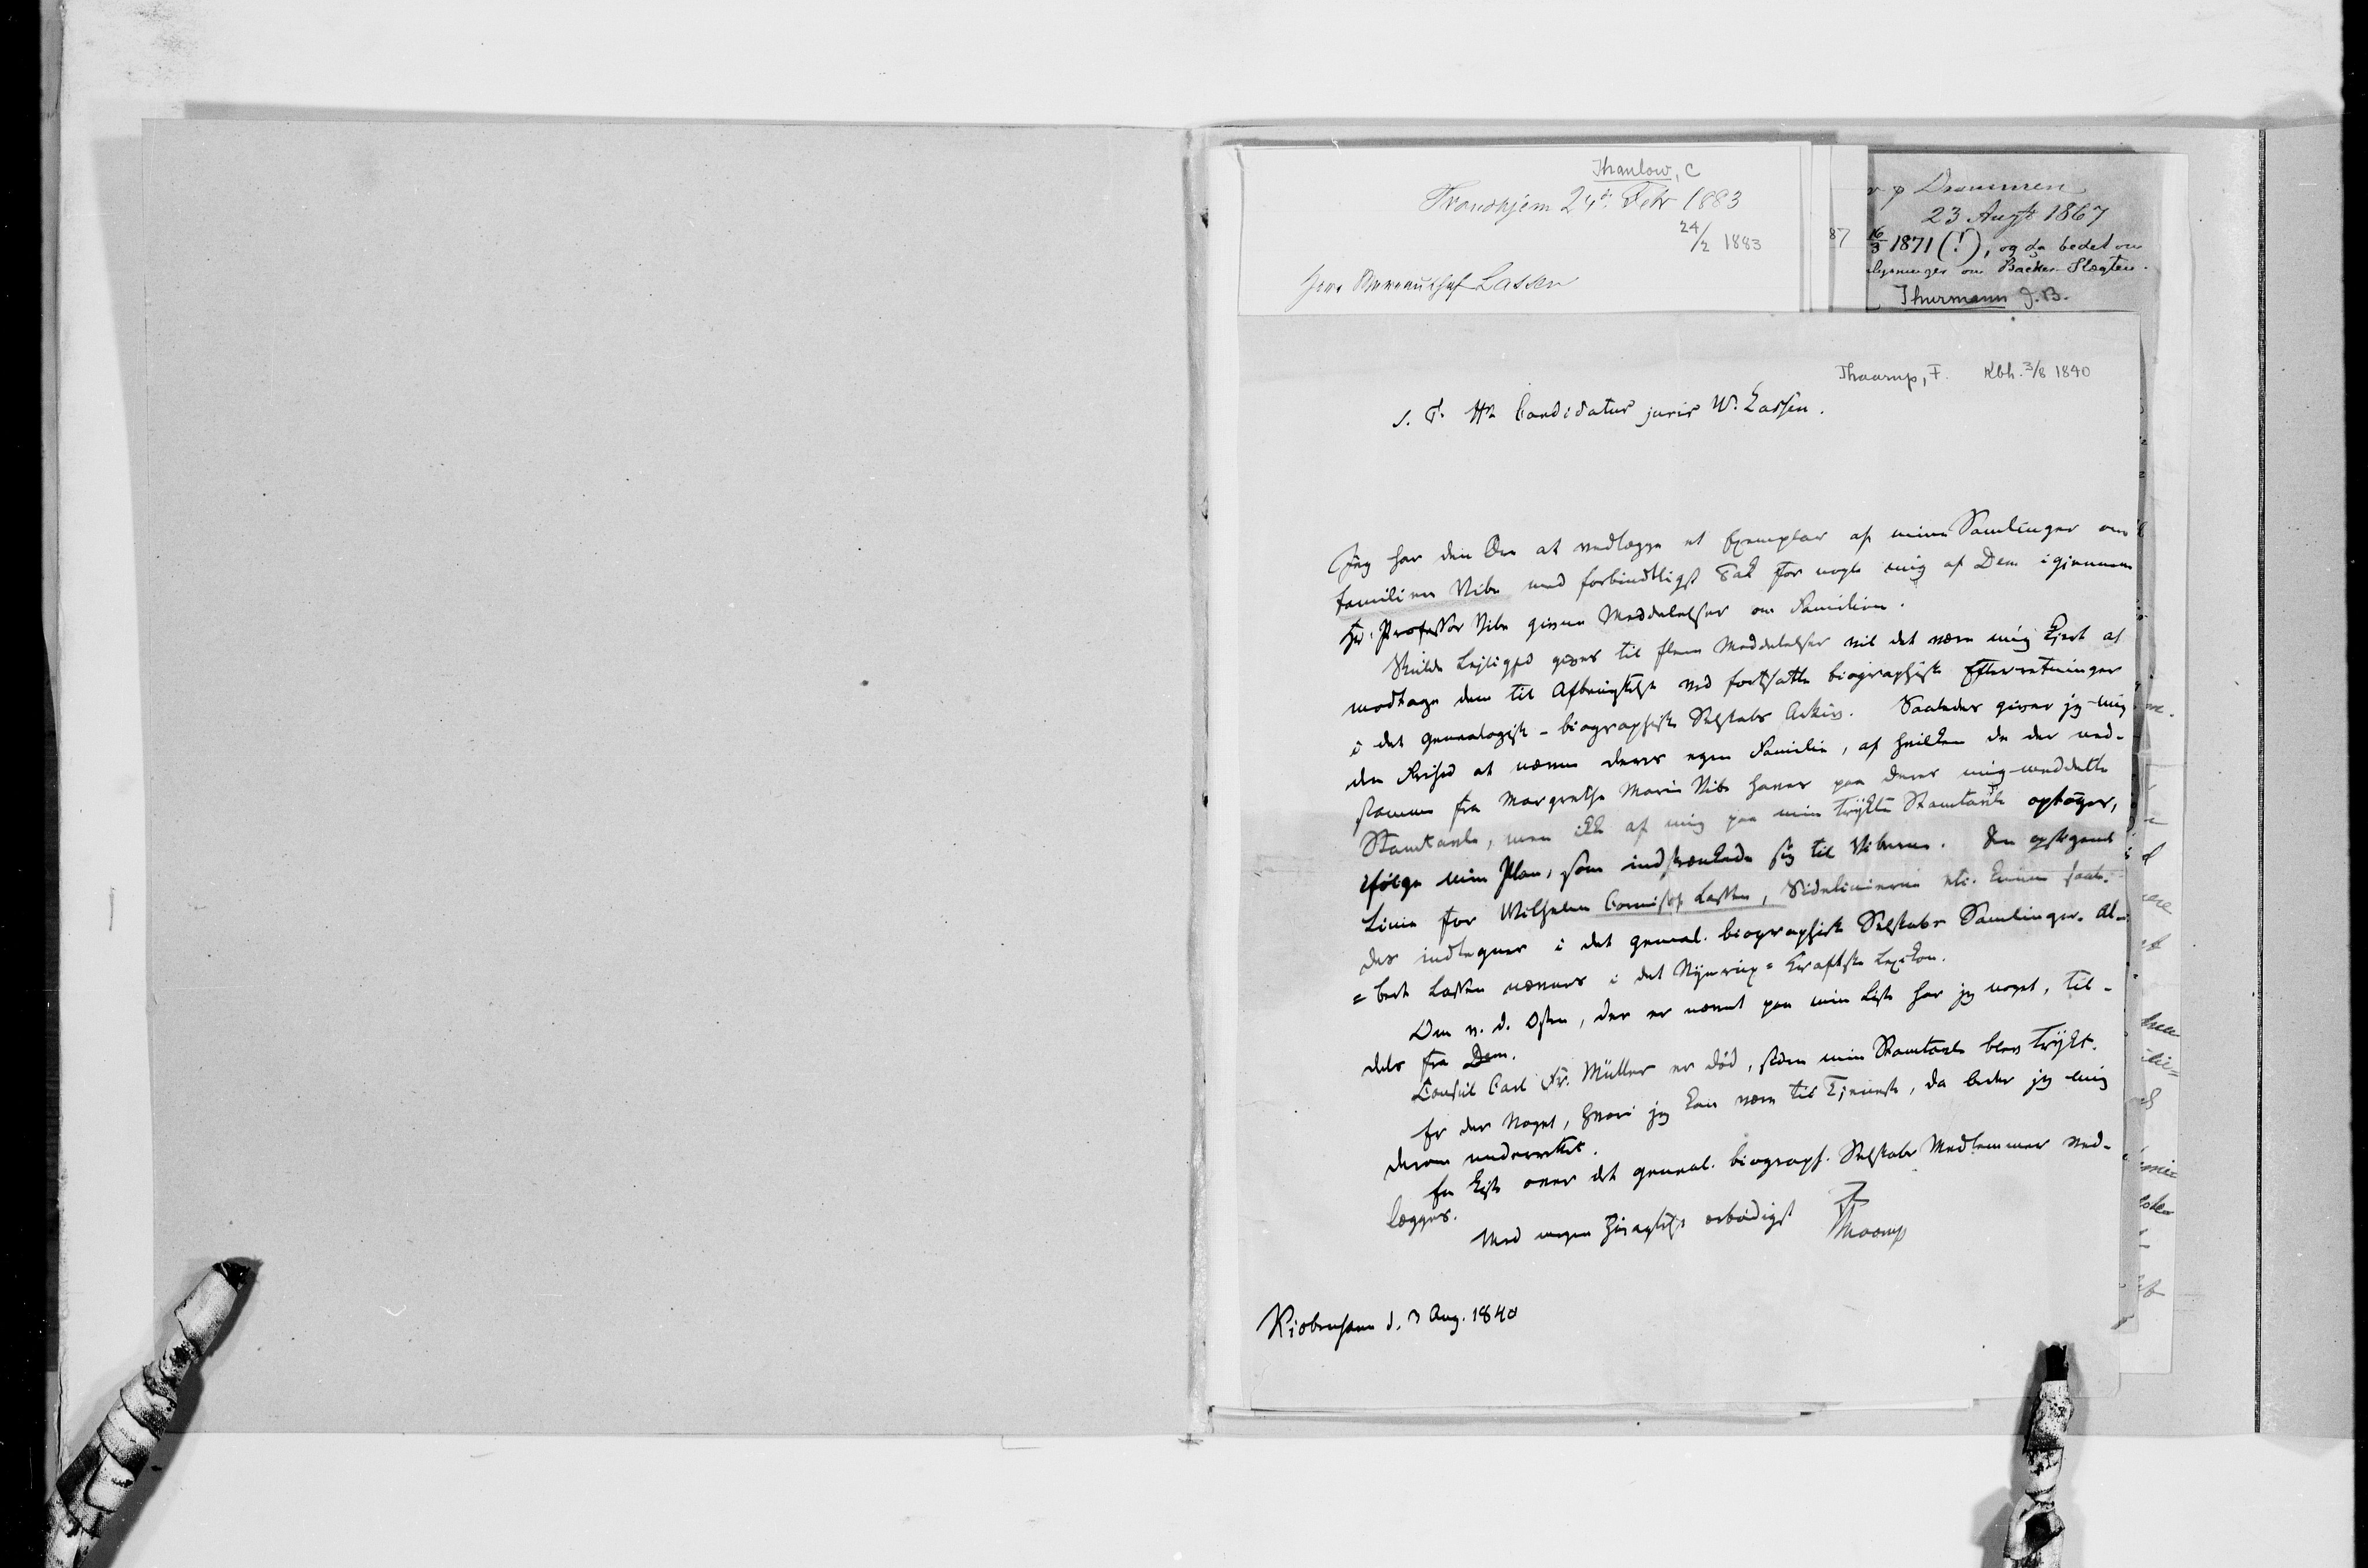 Thaulow, C
Trondhjem 24de Febr 1883
24/2 1883
Herr Lassen
87
r p Drammen
23 Augst 1867
16/3 1871 (!), og da bedet om
lysninger om Backer-Slægten.
Thurmann J.B.
Thaarup, F. Kbh. 3/8 1840
S. T. Hr. Candidatus juris W. Lassen.
Jeg har den Ære at vedlægge et Exemplar af mine Samlinger om
Familien Vibe med forbindtligst Tak for nogle mig af Dem igiennem
Hr. Professor Vibe givne Meddelelser om Familien.
Skulde Leilighed gives til flere Meddelelser vil det være mig kjert at
modtage dem til Afbenyttelse ved fortsatte biographiske Efterretninger
i det genealogisk-biographiske Selskabs Arkiv. Saaledes giver jeg mig
den Frihed at nævne deres egen Familie, af hvilken de der ned-
stamme fra Margrethe Marie Vibe haver paa deres mig meddelte
Stamtavle, men ikke af mig paa min trykte Stamtavle optages,
ifølge min Plan, som indskrænkede sig til Viberne. Den opstigende
Linie for Wilhelm Lassen, Sidelinierne etc. kunne saale-
des indtegnes i det geneal. biographiske Selskabs Samlinger. Al-
=bert Lassen nævnes i det Nyerup=Kraftske Lexikon.
Om v. d. Osten, der er nævnt paa min Liste har jeg noget, til-
dels fra Dem.
Consul Carl Fr. Müller er død, siden min Stamtavle blev trykt.
Er der Noget, hvori jeg kan være til Tjeneste, da beder jeg mig
derom underrettet.
En Liste over det geneal. biograph. Selskabs Medlemmer ved-
lægges.
Med megen Høiagtelse ærbødigst
Thaarup
Kiøbenhavn d. 3 Aug. 1840